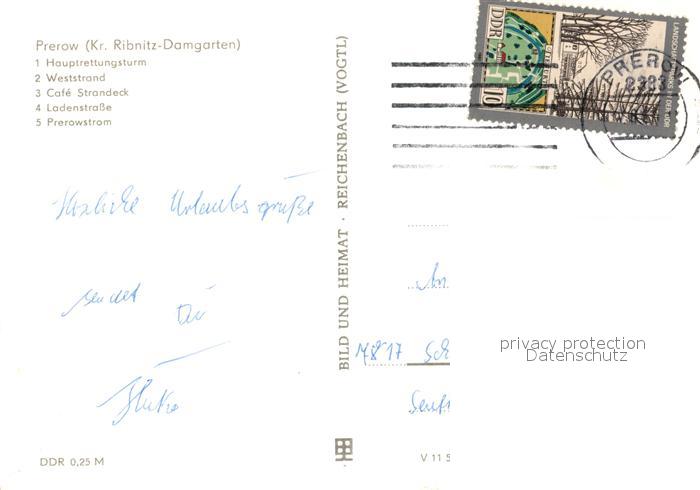 Prerow (Kr. Ribnitz-Damgarten)
1 Hauptrettungsturm
2 Weststrand
3 Café Strandeck
4 Ladenstraße
5 Prerowstrom
Herzliche Urlaubsgrüße
sendet
DDR 0,25 M
BILD UND HEIMAT · REICHENBACH (VOGTL)
V 11 5
DDR
10
PREROW
7817 Sch
privacy protection
Datenschutz